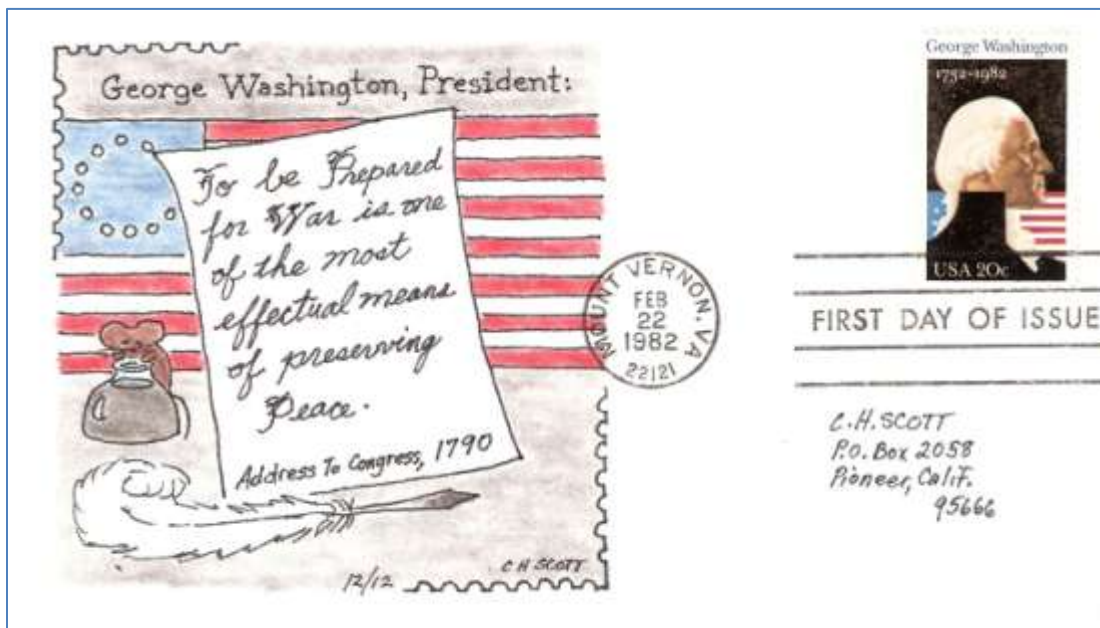 George Washington, President:
To be Prepared
for War is one
of the most
effectual means
of preserving
Peace.
Address To Congress, 1790
12/12
C H SCOTT
George Washington
1732-1982
USA 20c
MOUNT VERNON, VA
FEB
22
1982
22121
FIRST DAY OF ISSUE
C.H. SCOTT
P.O. Box 2058
Pioneer, Calif.
95666